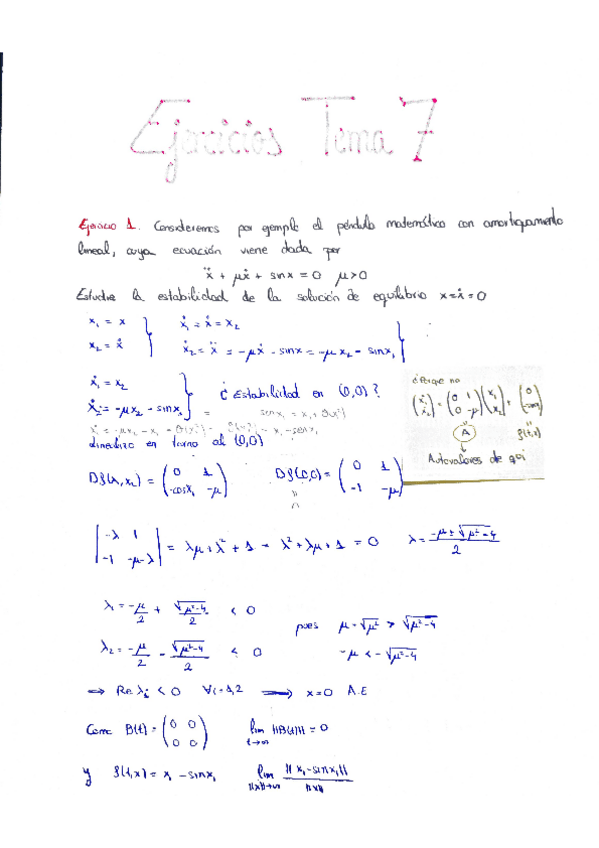 Ejercicios Tema 7
Ejercicio 1. Consideremos por ejemplo el péndulo matemático con amortiguamiento
lineal, cuya ecuación viene dada por
ẍ + μẋ + sinx = 0 μ>0
Estudie la estabilidad de la solución de equilibrio x=ẋ=0
x₁ = x
x₂ = ẋ
ẋ₁ = ẋ = x₂
ẋ₂ = ẍ = -μẋ - sinx = -μx₂ - sinx₁
ẋ₁ = x₂
ẋ₂ = -μx₂ - sinx₁
¿Estabilidad en (0,0)?
linealizo en torno al (0,0)
¿Porque no
(ẋ₁ ẋ₂) = (0 1 0 -μ)(x₁ x₂) + (0 -sinx₁)
A
Autovalores de aquí
Df(x₁,x₂) = (0 1 -cosx₁ -μ) Df(0,0) = (0 1 -1 -μ)
|-λ 1 -1 -μ-λ| = λμ + λ² + 1 = λ² + λμ + 1 = 0 λ = (-μ ± √(μ²-4))/2
λ₁ = -μ/2 + √(μ²-4)/2 < 0
pues μ = √μ² > √(μ²-4)
λ₂ = -μ/2 - √(μ²-4)/2 < 0
-μ < -√(μ²-4)
⇒ Re λᵢ < 0 ∀i=1,2 ⟹ x=0 A.E
Como B(t) = (0 0 0 0) lim t→∞ ||B(t)|| = 0
y f(t,x) = x₁ - sinx₁ lim ||x||→∞ ||x₁-sinx₁||/||x||